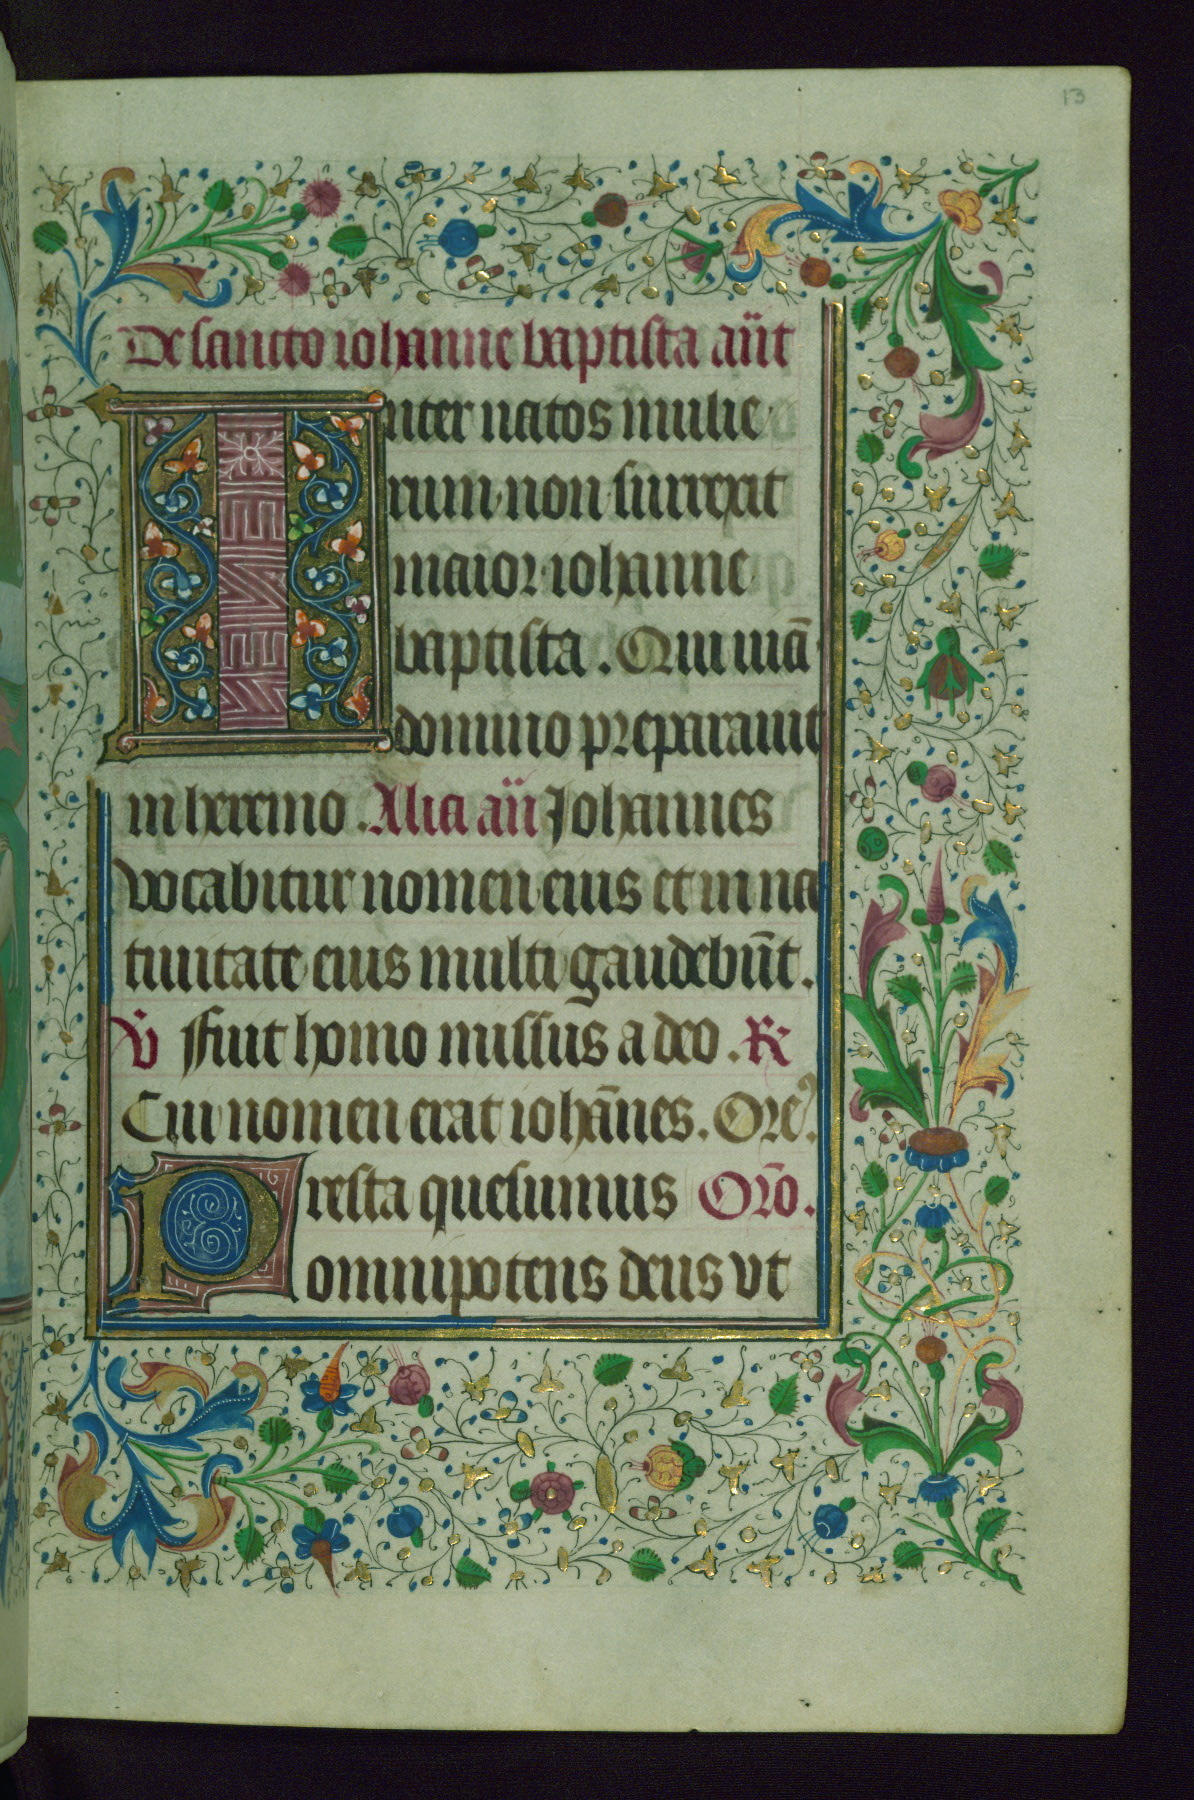 13
De sancto iohanne baptista añt
Inter natos mulie
rum non surrexit
maior iohanne
baptista. Qui uiā
domino preparauit
in heremo. Alia añ Johannes
vocabitur nomen eius et in na
tiuitate eius multi gaudebūt.
V̇ Fuit homo missus a deo. R
Cui nomen erat iohānes. Ore᷒.
Presta quesumus Orō.
omnipotens deus vt